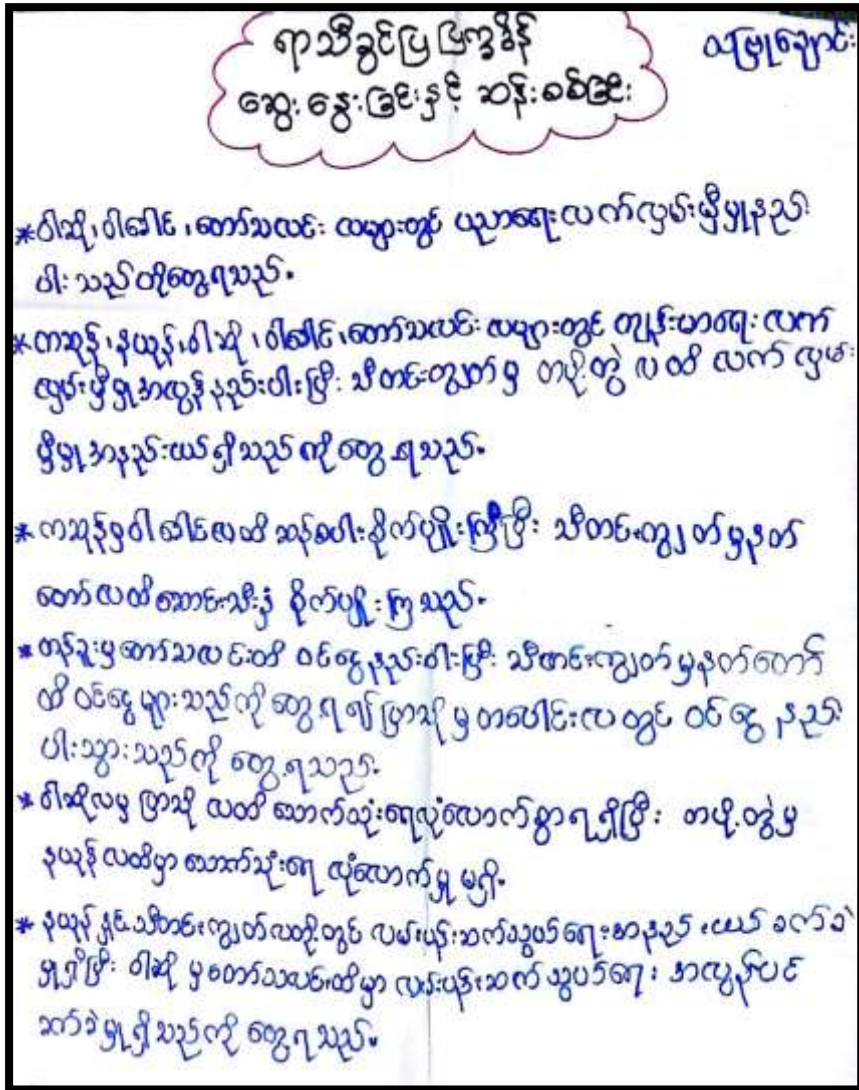 ရာသီခွင်ပြ ပြက္ခဒိန်
သမြုချောင်း
ဆွေးနွေးခြင်းနှင့် ဆန်းစစ်ခြင်း
*ဝါဆို၊ ဝါခေါင်၊ တော်သလင်း လများတွင် ပညာရေးလက်လှမ်းမှီမှုနည်း
ပါးသည်ကိုတွေ့ရသည်။
*ကဆုန်၊ နယုန်၊ ဝါဆို၊ ဝါခေါင်၊ တော်သလင်း လများတွင် ကျန်းမာရေး လက်
လှမ်းမှီမှုအလွန်နည်းပါးပြီး သီတင်းကျွတ်မှ တပို့တွဲ လထိ လက်လှမ်း
မှီမှုအနည်းငယ်ရှိသည်ကို တွေ့ရသည်။
*ကဆုန်မှဝါခေါင်လထိ ဆန်စပါးစိုက်ပျိုးကြပြီး သီတင်းကျွတ်မှနတ်
တော်လထိဆောင်းသီးနှံ စိုက်ပျိုးကြသည်။
*တန်ခူးမှတော်သလင်းထိ ဝင်ငွေနည်းပါးပြီး သီတင်းကျွတ်မှနတ်တော်
ထိ ဝင်ငွေများသည်ကို တွေ့ရ၍ ပြာသိုမှ တပေါင်းလတွင် ဝင်ငွေ နည်း
ပါးသွားသည်ကို တွေ့ရသည်။
*ဝါဆိုလမှ ပြာသို လထိ သောက်သုံးရေလုံလောက်စွာရရှိပြီး တပို့တွဲမှ
နယုန်လထိမှာ သောက်သုံးရေ လုံလောက်မှု မရှိ။
*နယုန်နှင့်သီတင်းကျွတ်လတို့တွင် လမ်းပန်းဆက်သွယ်ရေးအနည်းငယ် ခက်ခဲ
မှုရှိပြီး ဝါဆို မှတော်သလင်းထိမှာ လမ်းပန်းဆက်သွယ်ရေး အလွန်ပင်
ခက်ခဲမှုရှိသည်ကို တွေ့ရသည်။